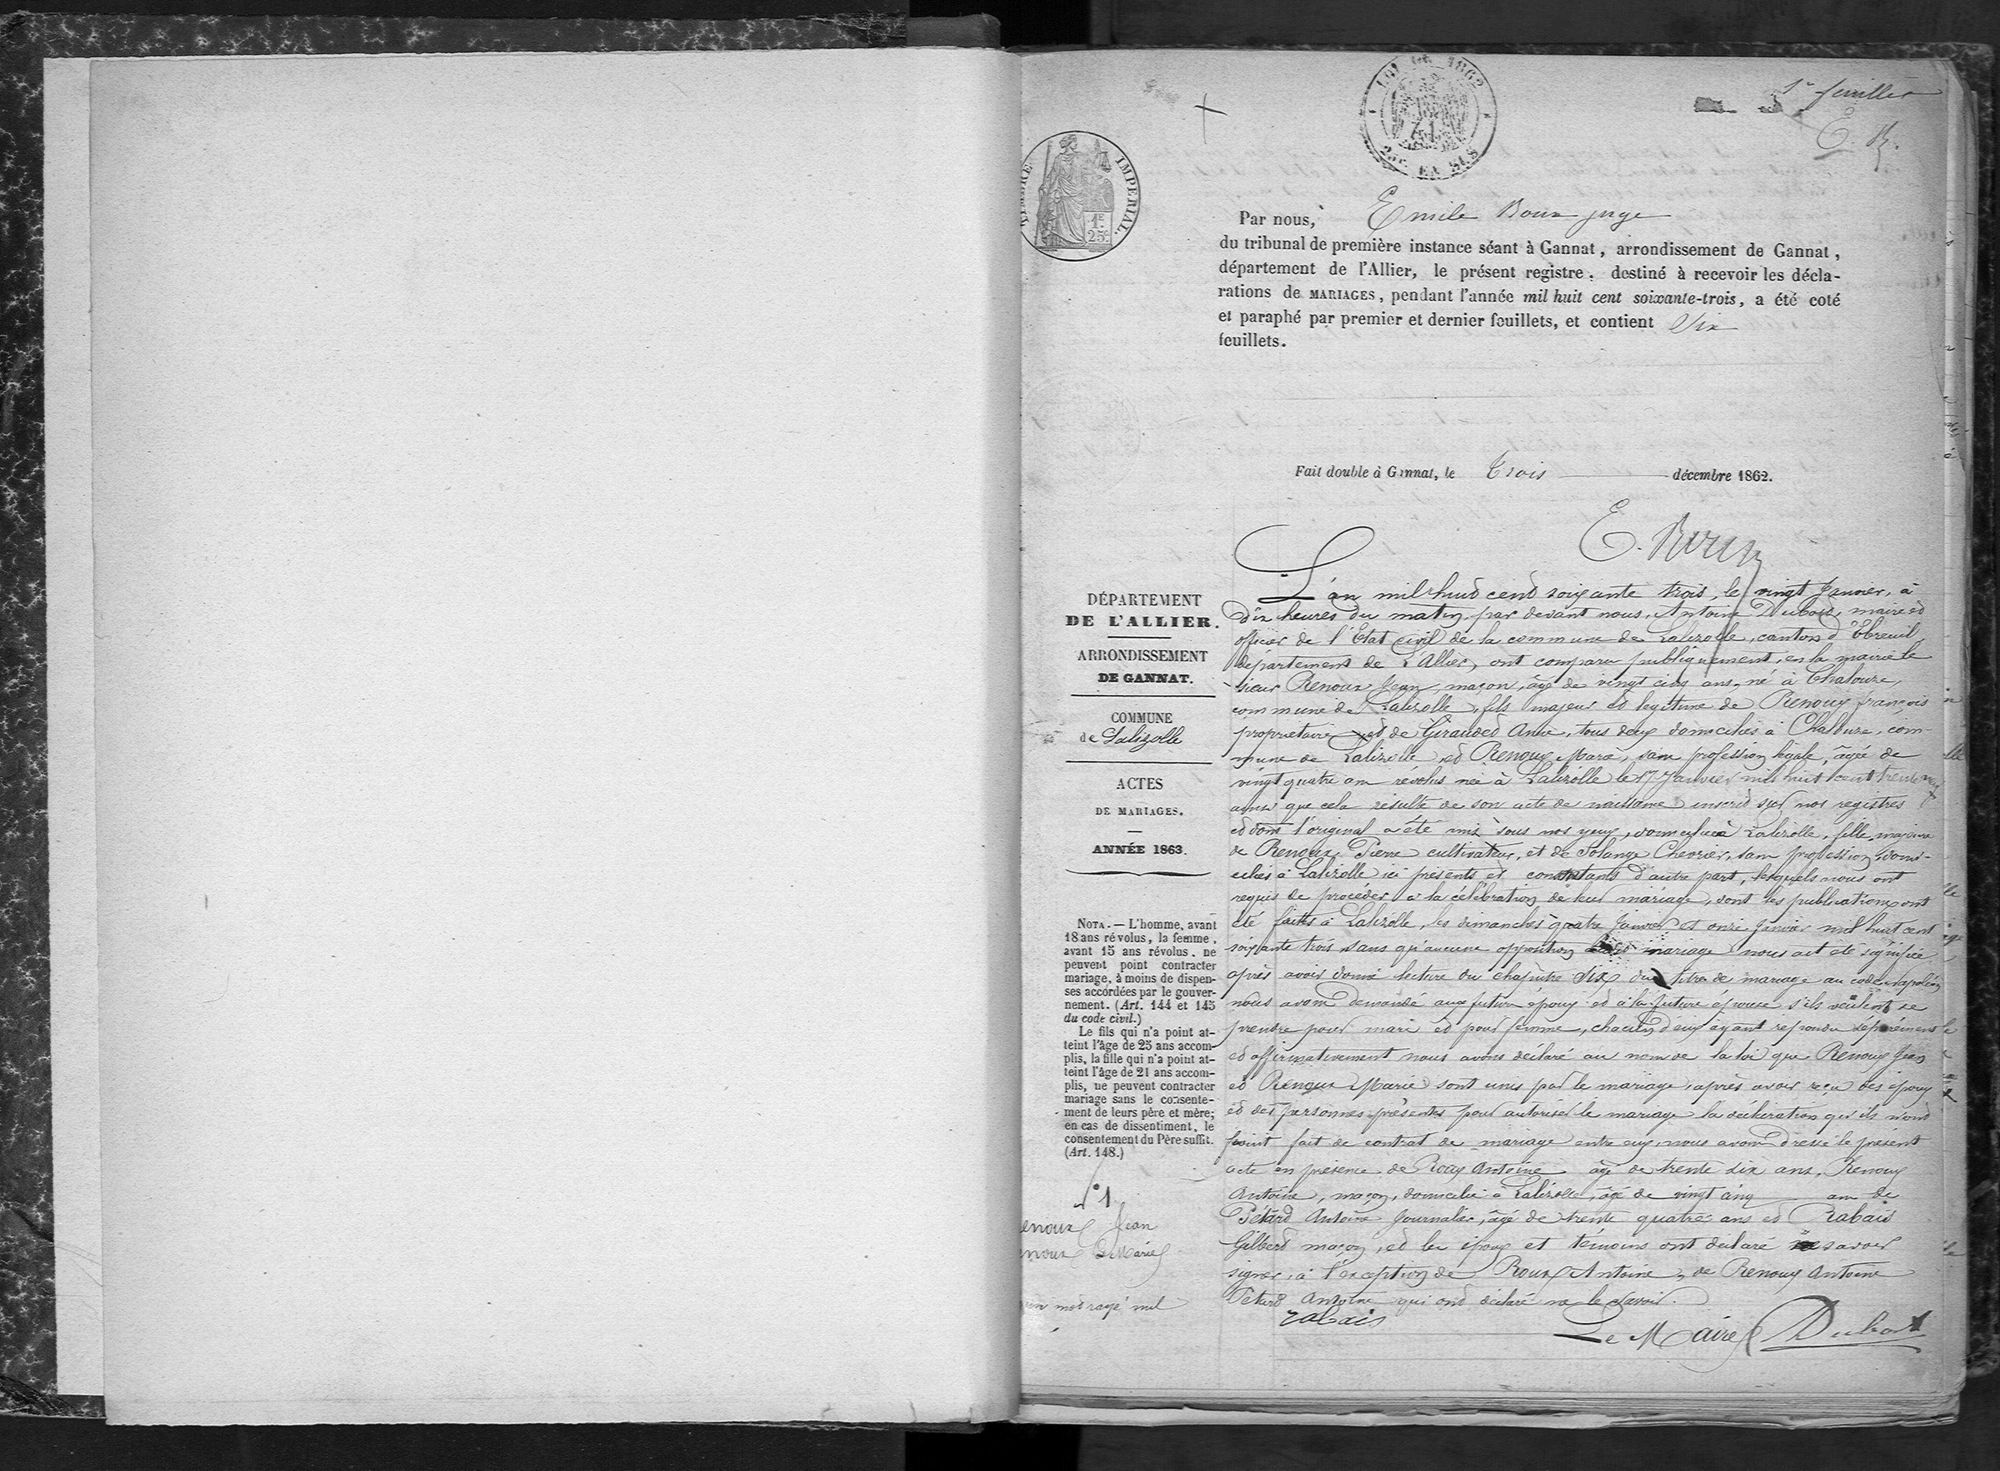 1er feuillet
E. B.
LOI DE 1862
25c. EN SUS
TIMBRE IMPERIAL.
1F. 25c.
Par nous, Emile Boux juge
du tribunal de première instance séant à Gannat, arrondissement de Gannat,
département de l'Allier, le présent registre, destiné à recevoir les décla-
rations de MARIAGES, pendant l'année mil huit cent soixante-trois, a été coté
et paraphé par premier et dernier feuillets, et contient Six
feuillets.
Fait double à Gannat, le Trois décembre 1862.
DÉPARTEMENT
DE L'ALLIER.
ARRONDISSEMENT
DE GANNAT.
COMMUNE
de Lalizolle
ACTES
DE MARIAGES.
ANNÉE 1863.
NOTA. — L'homme, avant
18 ans révolus, la femme,
avant 15 ans révolus, ne
peuvent point contracter
mariage, à moins de dispen-
ses accordées par le gouver-
nement. (Art. 144 et 145
du code civil.)
Le fils qui n'a point at-
teint l'âge de 25 ans accom-
plis, la fille qui n'a point at-
teint l'âge de 21 ans accom-
plis, ne peuvent contracter
mariage sans le consente-
ment de leurs père et mère;
en cas de dissentiment, le
consentement du Père suffit.
(Art. 148.)
N° 1
enoux Jean
noux Marie
un mot rayé nul
L'an mil huit cent soixante trois, le vingt Janvier, à
Dix heures du matin, par devant nous, Antoine Dubost, maire et
officier de l'Etat civil de la commune de Lalizolle, canton d'Ebreuil
département de L'Allier, ont comparu publiquement, en la mairie le
sieur Renoux Jean, maçon, âgé de vingt cinq ans, né à Chaloure,
commune de Lalizolle, fils majeur et légitime de Renoux françois
propriétaire et de Giraudet Anne, tous deux domiciliés à Chaloure, com-
mune de Lalizolle, et Renoux Marie, sans profession légale, âgée de
vingt quatre ans révolus née à Lalizolle le 17 Janvier mil huit cent trente neuf
ainsi que cela résulte de son acte de naissance inscrit sur nos registres
et dont l'original a été mis sous nos yeux, domiciliée à Lalizolle, fille majeure
de Renoux Pierre cultivateur, et de Solange Chevrier, sans profession, domi-
ciliés à Lalizolle ici présents et consentants d'autre part, lesquels nous ont
requis de procéder à la célébration de leur mariage, dont les publications ont
été faites à Lalizolle, les dimanches quatre Janvier et onze Janvier mil huit cent
soixante trois sans qu'aucune opposition mariage nous ait été signifiée
après avoir donné lecture du chapitre six du titre de mariage au code napoléon
nous avons demandé aux futur époux et à la future épouse s'ils veulent se
prendre pour mari et pour femme, chacun d'eux ayant répondu séparément
et affirmativement nous avons déclaré au nom de la loi que Renoux Jean
et Renoux Marie sont unis par le mariage, après avoir reçu des époux
et des personnes présentes pour autoriser le mariage la déclaration qu'ils n'ont
point fait de contrat de mariage entre eux, nous avons dressé le présent
acte en présence de Roux Antoine âgé de trente six ans, Renoux
Antoine, maçon, domicilié à Lalizolle, âgé de vingt cinq ans de
Pétard Antoine Journalier, âgé de trente quatre ans et Rabais
Gilbert maçon, et les époux et témoins ont déclaré savoir
signer, à l'exception de Roux Antoine, de Renoux Antoine
Pétard Antoine qui ont déclaré ne le savoir.
rabais
Le Maire Dubost